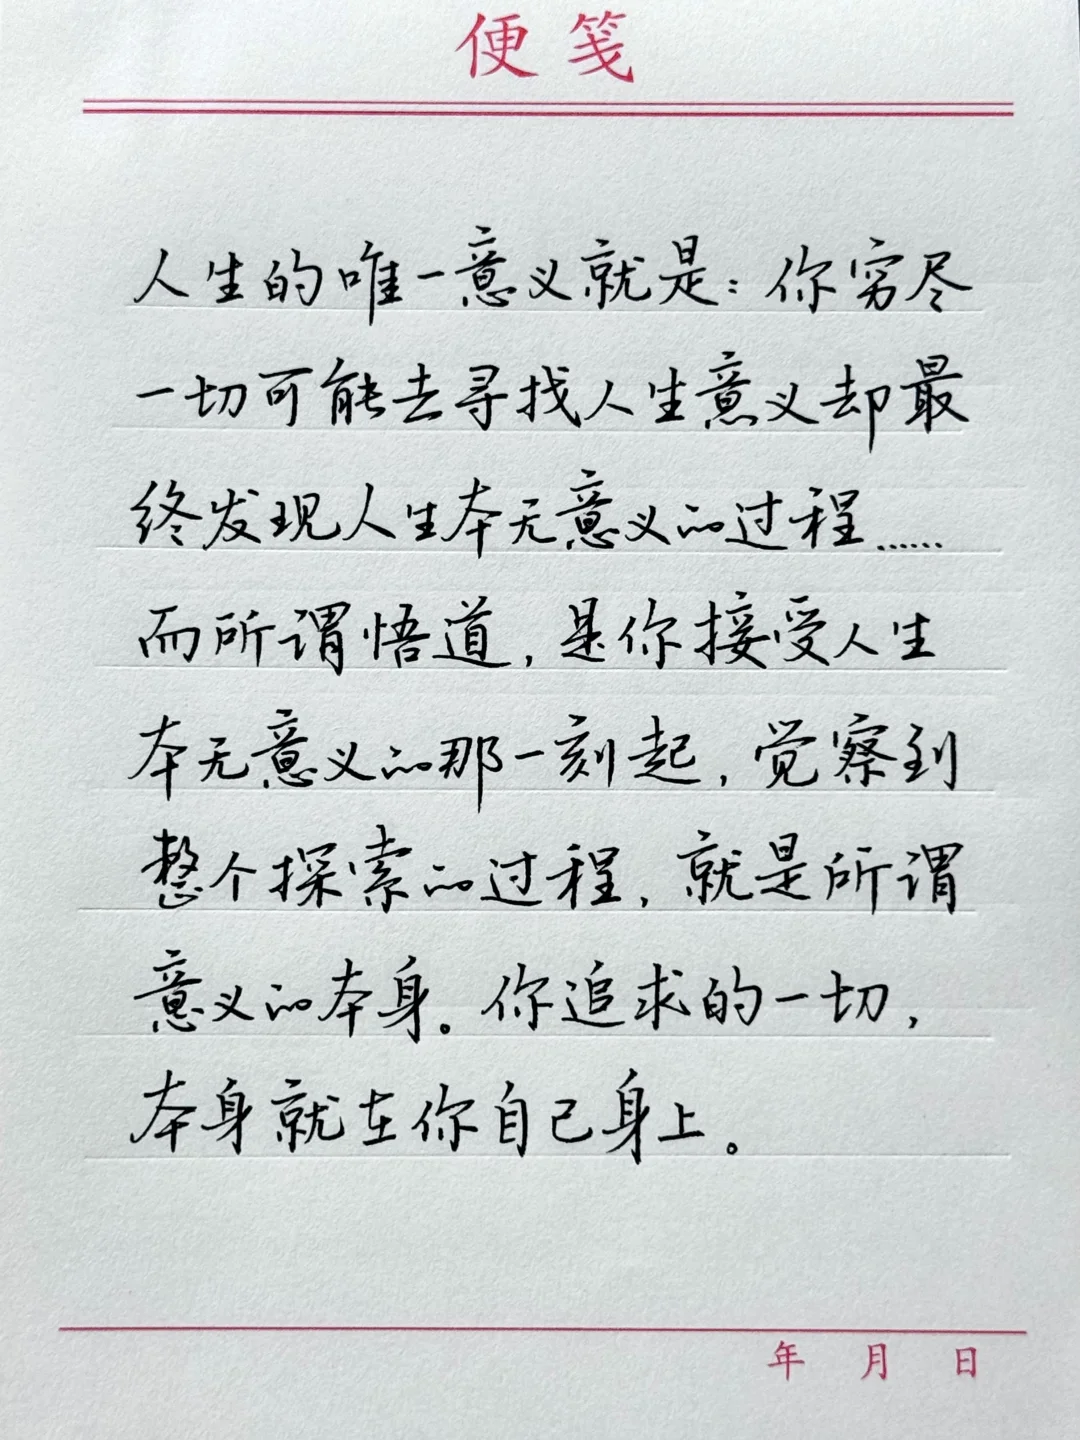 便笺
人生的唯一意义就是：你穷尽
一切可能去寻找人生意义却最
终发现人生本无意义的过程……
而所谓悟道，是你接受人生
本无意义的那一刻起，觉察到
整个探索的过程，就是所谓
意义的本身。你追求的一切，
本身就在你自己身上。
年 月 日